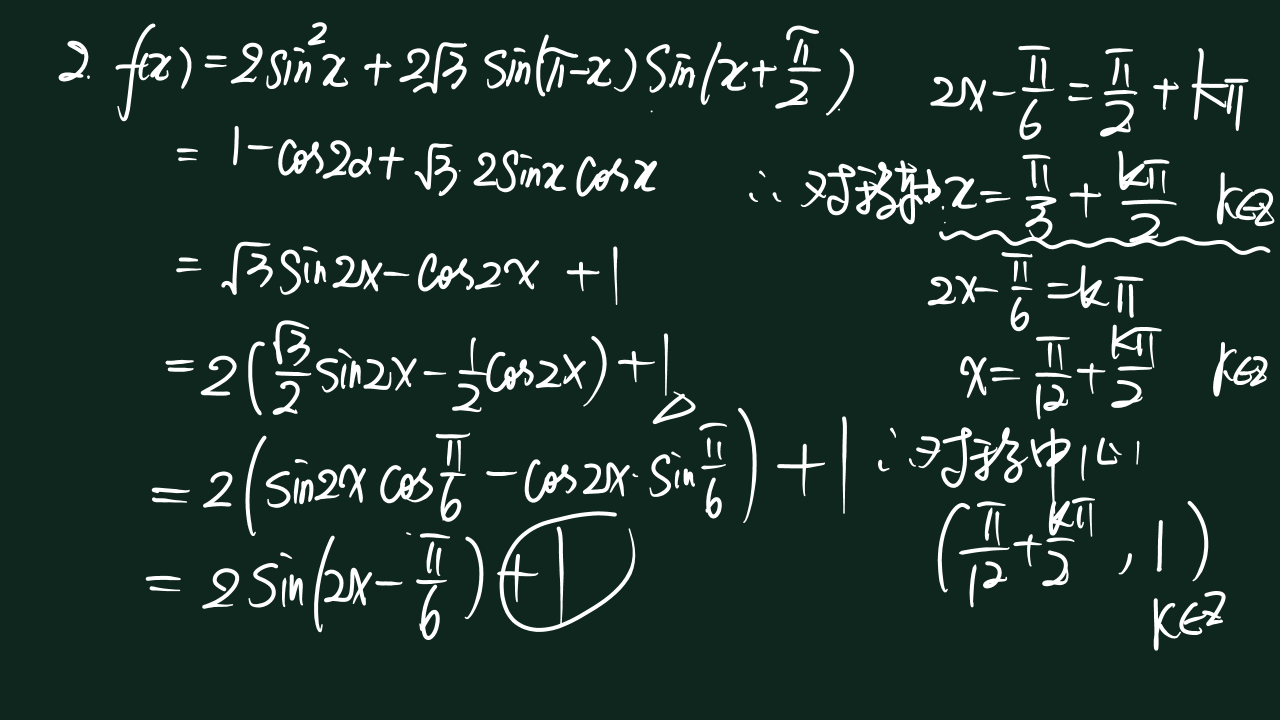 2. f(x) = 2sin²x + 2√3 sin(π-x) sin(x+π/2)
= 1-cos2α+√3·2sinx cosx
= √3 sin2x-cos2x +1
= 2(√3/2 sin2x - 1/2 cos2x)+1
= 2(sin2x cos π/6 - cos2x·sin π/6)+1
= 2sin(2x- π/6)+1
2x- π/6 = π/2 + kπ
∴对称轴x= π/3 + kπ/2 k∈Z
2x- π/6 =kπ
x= π/12 + kπ/2 k∈Z
∴对称中心
(π/12 + kπ/2 , 1)
k∈Z